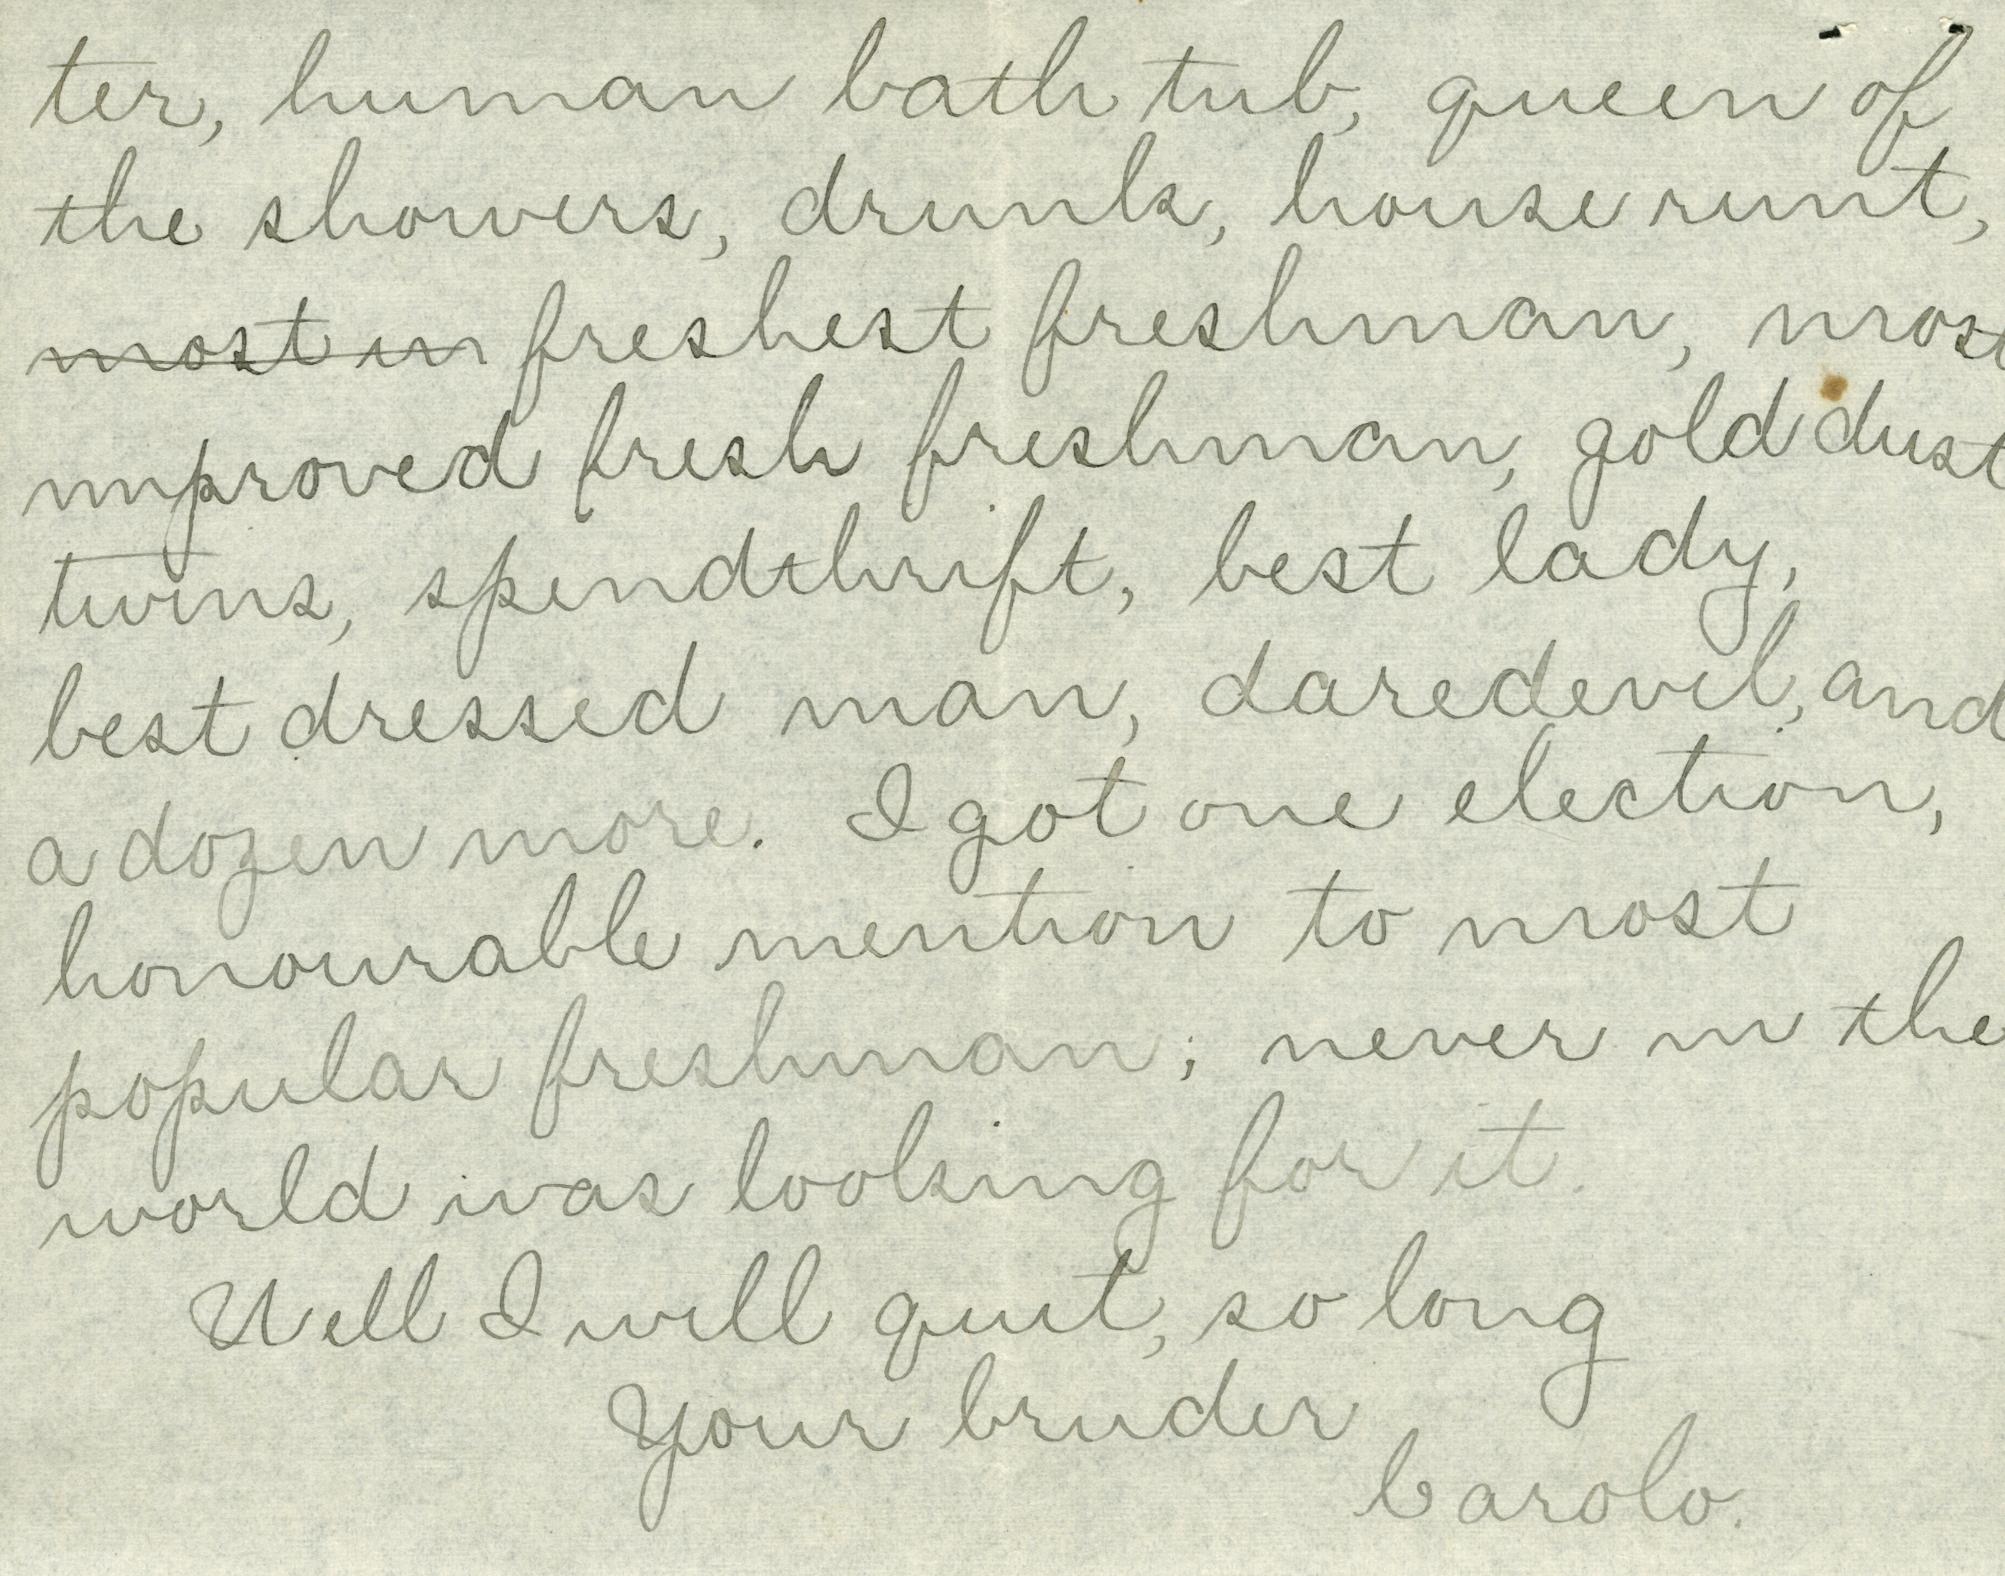 ter, human bath tub, queen of
the showers, drunk, house runt,
most im freshest freshman, most
improved fresh freshman, gold dust
twins, spendthrift, best lady,
best dressed man, daredevil, and
a dozen more. I got one election,
honourable mention to most
popular freshman; never in the
world was looking for it.
Well I will quit, so long
Your bruder
Carolo.